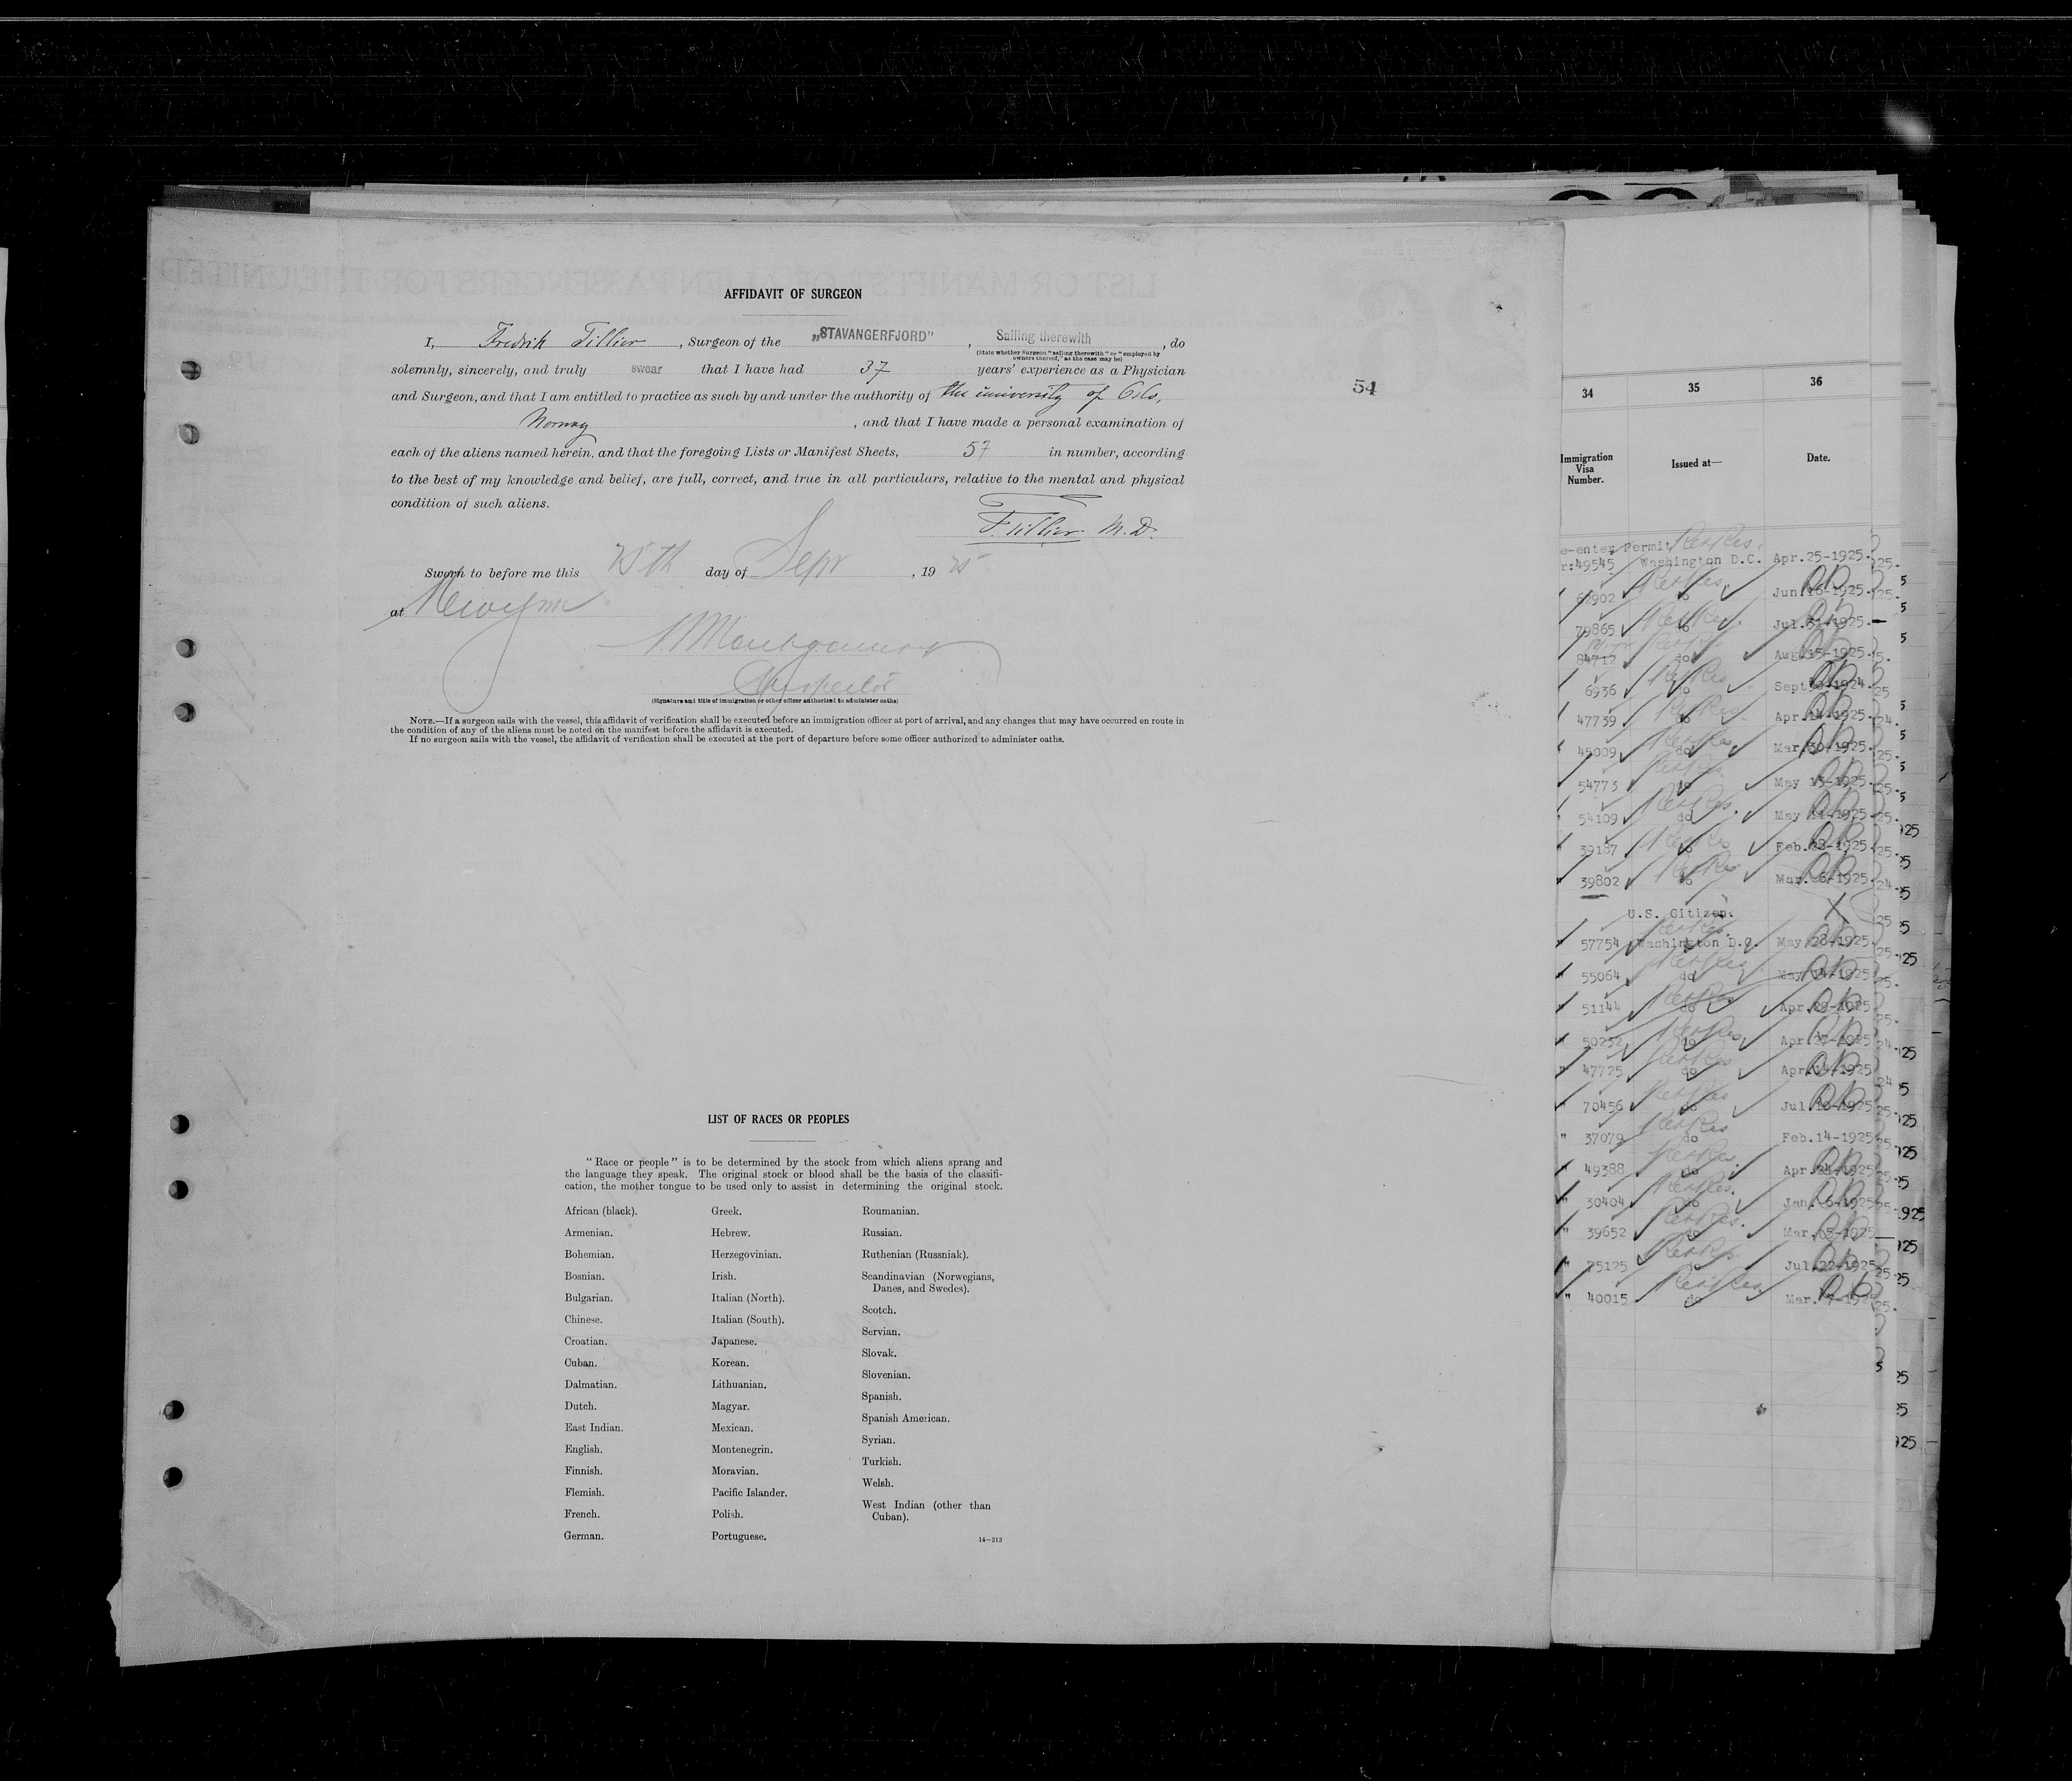 AFFIDAVIT OF SURGEON
I, Fredrik Tillier, Surgeon of the „STAVANGERFJORD", Sailing therewith, do
(State whether Surgeon "sailing therewith" or "employed by
owners thereof," as the case may be)
solemnly, sincerely, and truly swear that I have had 37 years' experience as a Physician
and Surgeon, and that I am entitled to practice as such by and under the authority of the university of Oslo,
Norway, and that I have made a personal examination of
each of the aliens named herein, and that the foregoing Lists or Manifest Sheets, 57 in number, according
to the best of my knowledge and belief, are full, correct, and true in all particulars, relative to the mental and physical
condition of such aliens.
F. Tillier M.D.
Sworn to before me this 25th day of Sepr, 1925
at
Montgomery
Inspector
(Signature and title of immigration or other officer authorized to administer oaths)
NOTE.—If a surgeon sails with the vessel, this affidavit of verification shall be executed before an immigration officer at port of arrival, and any changes that may have occurred en route in
the condition of any of the aliens must be noted on the manifest before the affidavit is executed.
If no surgeon sails with the vessel, the affidavit of verification shall be executed at the port of departure before some officer authorized to administer oaths.
LIST OF RACES OR PEOPLES
"Race or people" is to be determined by the stock from which aliens sprang and
the language they speak. The original stock or blood shall be the basis of the classifi-
cation, the mother tongue to be used only to assist in determining the original stock.
African (black).
Armenian.
Bohemian.
Bosnian.
Bulgarian.
Chinese.
Croatian.
Cuban.
Dalmatian.
Dutch.
East Indian.
English.
Finnish.
Flemish.
French.
German.
Greek.
Hebrew.
Herzegovinian.
Irish.
Italian (North).
Italian (South).
Japanese.
Korean.
Lithuanian.
Magyar.
Mexican.
Montenegrin.
Moravian.
Pacific Islander.
Polish.
Portuguese.
Roumanian.
Russian.
Ruthenian (Russniak).
Scandinavian (Norwegians,
Danes, and Swedes).
Scotch.
Servian.
Slovak.
Slovenian.
Spanish.
Spanish American.
Syrian.
Turkish.
Welsh.
West Indian (other than
Cuban).
14—213
54
34 35 36
Immigration
Visa
Number.
Issued at—
Date.
e-enter Permit
r:49545 Washington D.C. Apr.25-1925.
do Jun.16-1925.
79865 do Jul.31-1925.
84712 do Aug.15-1925.
6936 do
47739 do Apr.14-1925.
45009 do Mar.30-1925.
54773 do May 13-1925.
54109 do May 11-1925.
39187 do Feb.28-1925.
39802 do Mar. 6-1925.
U.S. Citizen.
" 57754 Washington D.C. May 28-1925.
" 55064 do May 14-1925
" 51144 do Apr.29-1925
" 50232 do Apr.27-1925
" 47725 do Apr.14-1925
" 70456 do
" 37079 do Feb.14-1925
" 49388 do Apr.24-1925
" 30404 do Jan. 6-1925
" 39652 do Mar. 5-1925
" 75125 do Jul.22-1925
" 40015 do Mar. 7-1925